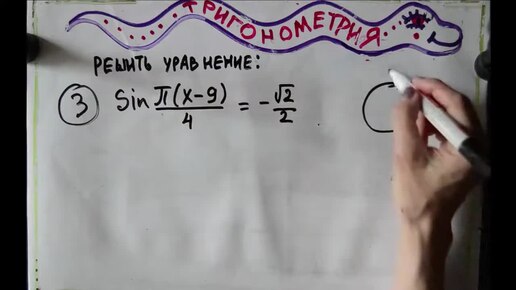 ТРИГОНОМЕТРИЯ
РЕШИТЬ УРАВНЕНИЕ:
3 Sin π(x-9)/4 = -√2/2